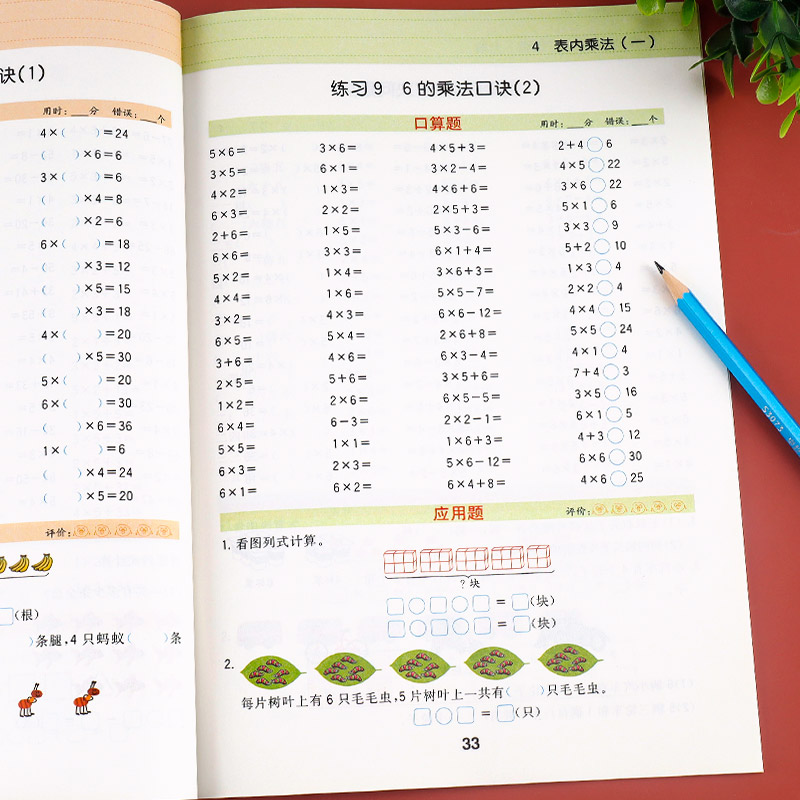 诀(1)
用时:___分 错误:___个
4×( )=24
( )×6=6
3×( )=6
( )×4=8
( )×2=6
6×( )=18
( )×3=12
( )×5=15
( )×3=18
4×( )=20
( )×5=30
5×( )=20
6×( )=30
( )×6=36
1×( )=6
( )×4=24
( )×5=20
评价:
(根)
)条腿,4只蚂蚁( )条
4 表内乘法(一)
练习9 6的乘法口诀(2)
口算题 用时:___分 错误:___个
5×6= 3×6= 4×5+3= 2+4○6
3×5= 6×1= 3×2-4= 4×5○22
4×2= 1×3= 4×6+6= 3×6○22
6×3= 2×2= 2×5+3= 5×1○6
2+6= 1×5= 5×3-6= 3×3○9
6×6= 3×3= 6×1+4= 5+2○10
5×2= 1×4= 3×6+3= 1×3○4
4×4= 1×6= 5×5-7= 2×2○4
3×2= 4×3= 6×6-12= 4×4○15
6×5= 5×4= 2×6+8= 5×5○24
3+6= 4×6= 6×3-4= 4×1○4
2×5= 5+6= 3×5+6= 7+4○3
1×2= 2×6= 6×5-5= 3×5○16
6×4= 6-3= 2×2-1= 6×1○5
5×5= 1×1= 1×6+3= 4+3○12
6×3= 2×3= 5×6-12= 6×6○30
6×1= 6×2= 6×4+8= 4×6○25
应用题 评价:
1. 看图列式计算。
?块
□○□○□=□(块)
□○□○□=□(块)
2.
每片树叶上有6只毛毛虫,5片树叶上一共有( )只毛毛虫。
□○□=□(只)
33